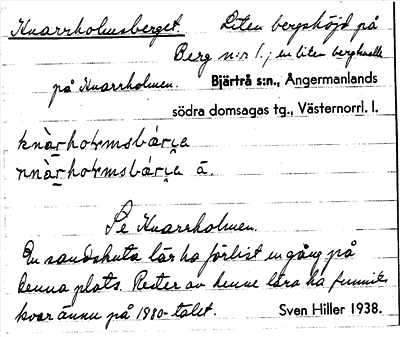 Knarrholmsberget. Liten bergshöjd på
Berg n:r 1.; en liten bergknalle
på Knarrholmen. Bjärtrå s:n., Ångermanlands
södra domsagas tg., Västernorrl. l.
Se Knarrholmen.
En sandskuta lär ha förlist en gång på
denna plats. Rester av denne lära ha funnits
kvar ännu på 1880-talet. Sven Hiller 1938.